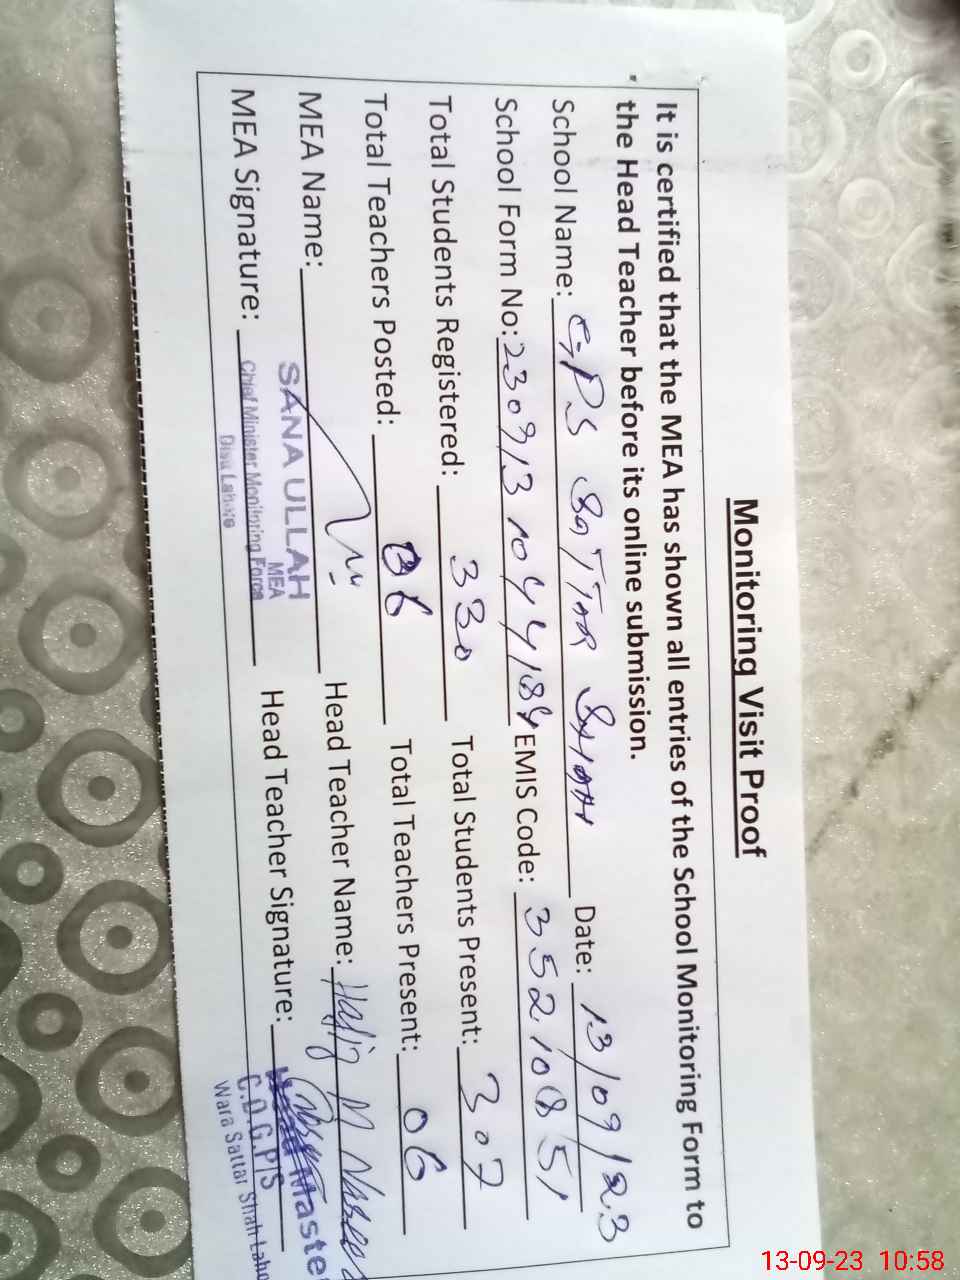 Monitoring Visit Proof
It is certified that the MEA has shown all entries of the School Monitoring Form to
the Head Teacher before its online submission.
School Name: GPS SATTAR SHAH Date: 13/09/23
School Form No: 2309131044184 EMIS Code: 35210851
Total Students Registered: 330 Total Students Present: 307
Total Teachers Posted: 06 Total Teachers Present: 06
MEA Name: Head Teacher Name: Hafiz M Naseer
SANA ULLAH
MEA
MEA Signature: Head Teacher Signature:
Chief Minister Monitoring Force
Head Master
C.D.G.P/S
Wara Sattar Shah Laho
13-09-23 10:58